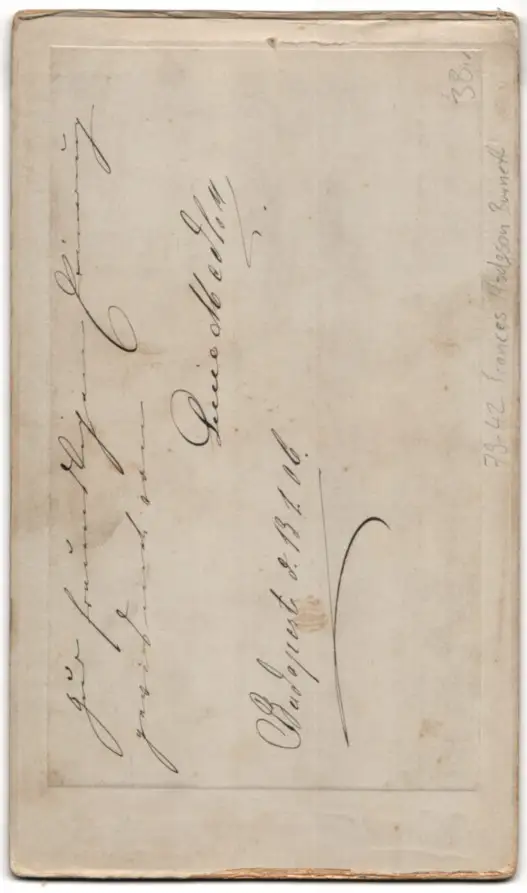 Zur freundlichen Erinnerung
gewidmet von
Budapest d. 13/1. 06.
79-42 Frances Hodgson Burnett
38.